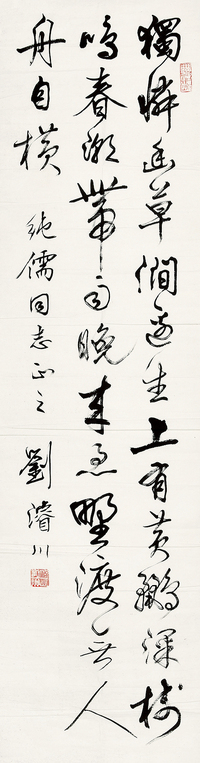 獨憐幽草澗邊生上有黃鸝深樹
鳴春潮帶雨晚來急野渡無人
舟自橫
純儒同志正之
劉濬川